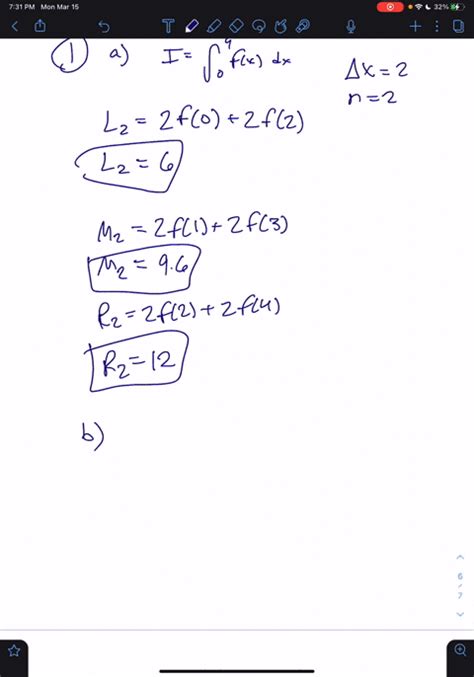 7:31 PM Mon Mar 15
32%
T
① a) I = ∫₀⁴ f(x) dx
Δx = 2
n = 2
L₂ = 2f(0) + 2f(2)
L₂ = 6
M₂ = 2f(1) + 2f(3)
M₂ = 9.6
R₂ = 2f(2) + 2f(4)
R₂ = 12
b)
6
/
7